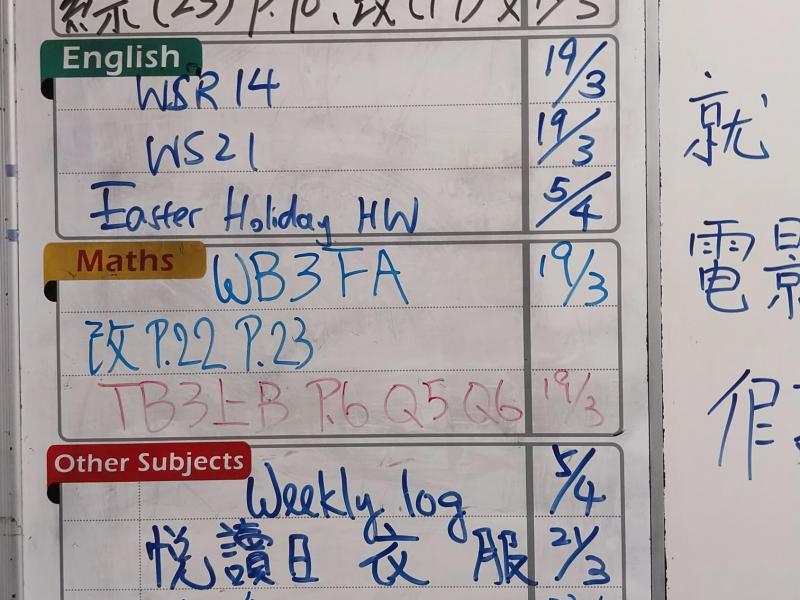 (23) P.10、改(17)
English
WSR 14 19/3
WS21 19/3
Easter Holiday HW 5/4
Maths
WB3下A 19/3
改 P.22 P.23
TB3上B P.6 Q5 Q6 19/3
Other Subjects
Weekly log 5/4
悅讀日 衣 服 21/3
就
電影
作